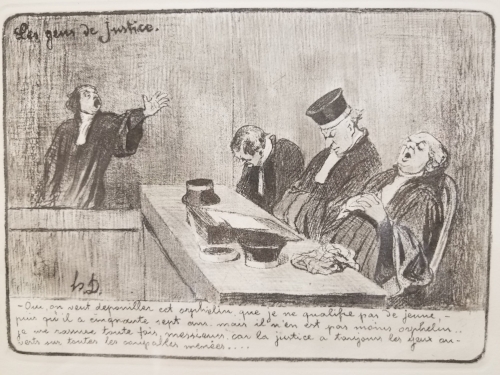 Les gens de justice.
h.D.
- Oui, on veut dépouiller cet orphelin, que je ne qualifie pas de jeune, -
puis qu'il a cinquante sept ans, mais il n'en est pas moins orphelin..
je me rassure toute fois, messieurs, car la justice a toujours les yeux ou-
verts sur toutes les coupables menées....